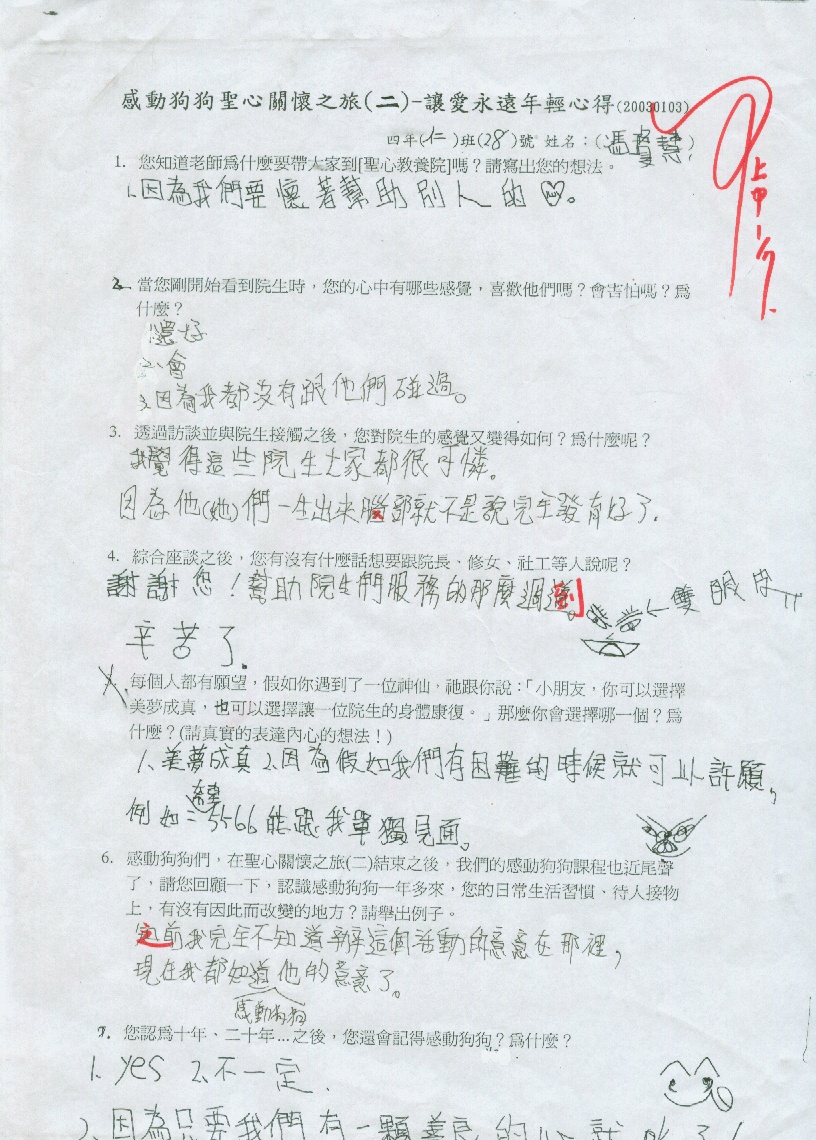 感動狗狗聖心關懷之旅(二)-讓愛永遠年輕心得(20030103)
四年(仁)班(28)號 姓名:(馮賢慧)
1. 您知道老師為什麼要帶大家到[聖心教養院]嗎?請寫出您的想法。
1.因為我們要懷著幫助別人的♡。
2. 當您剛開始看到院生時,您的心中有哪些感覺,喜歡他們嗎?會害怕嗎?為
什麼?
還好
2.會
3.因為我都沒有跟他們碰過。
3. 透過訪談並與院生接觸之後,您對院生的感覺又變得如何?為什麼呢?
我覺得這些院生大家都很可憐。
因為他(她)們一生出來腦部就不是說完全發育好了.
4. 綜合座談之後,您有沒有什麼話想要跟院長、修女、社工等人說呢?
謝謝您!幫助院生們服務的那麼週到。
←雙眼皮
辛苦了.
每個人都有願望,假如你遇到了一位神仙,祂跟你說:「小朋友,你可以選擇
美夢成真,也可以選擇讓一位院生的身體康復。」那麼你會選擇哪一個?為
什麼?(請真實的表達內心的想法!)
1.美夢成真 2.因為假如我們有困難的時候就可以許願,
例如:希望5566能跟我單獨見面。
6. 感動狗狗們,在聖心關懷之旅(二)結束之後,我們的感動狗狗課程也近尾聲
了,請您回顧一下,認識感動狗狗一年多來,您的日常生活習慣、待人接物
上,有沒有因此而改變的地方?請舉出例子。
之前我完全不知道辦這個活動的意義在那裡,
現在我都知道他的意義了。
感動狗狗
7. 您認為十年、二十年...之後,您還會記得感動狗狗?為什麼?
1. yes 2.不一定.
2.因為只要我們有一顆善良的心就